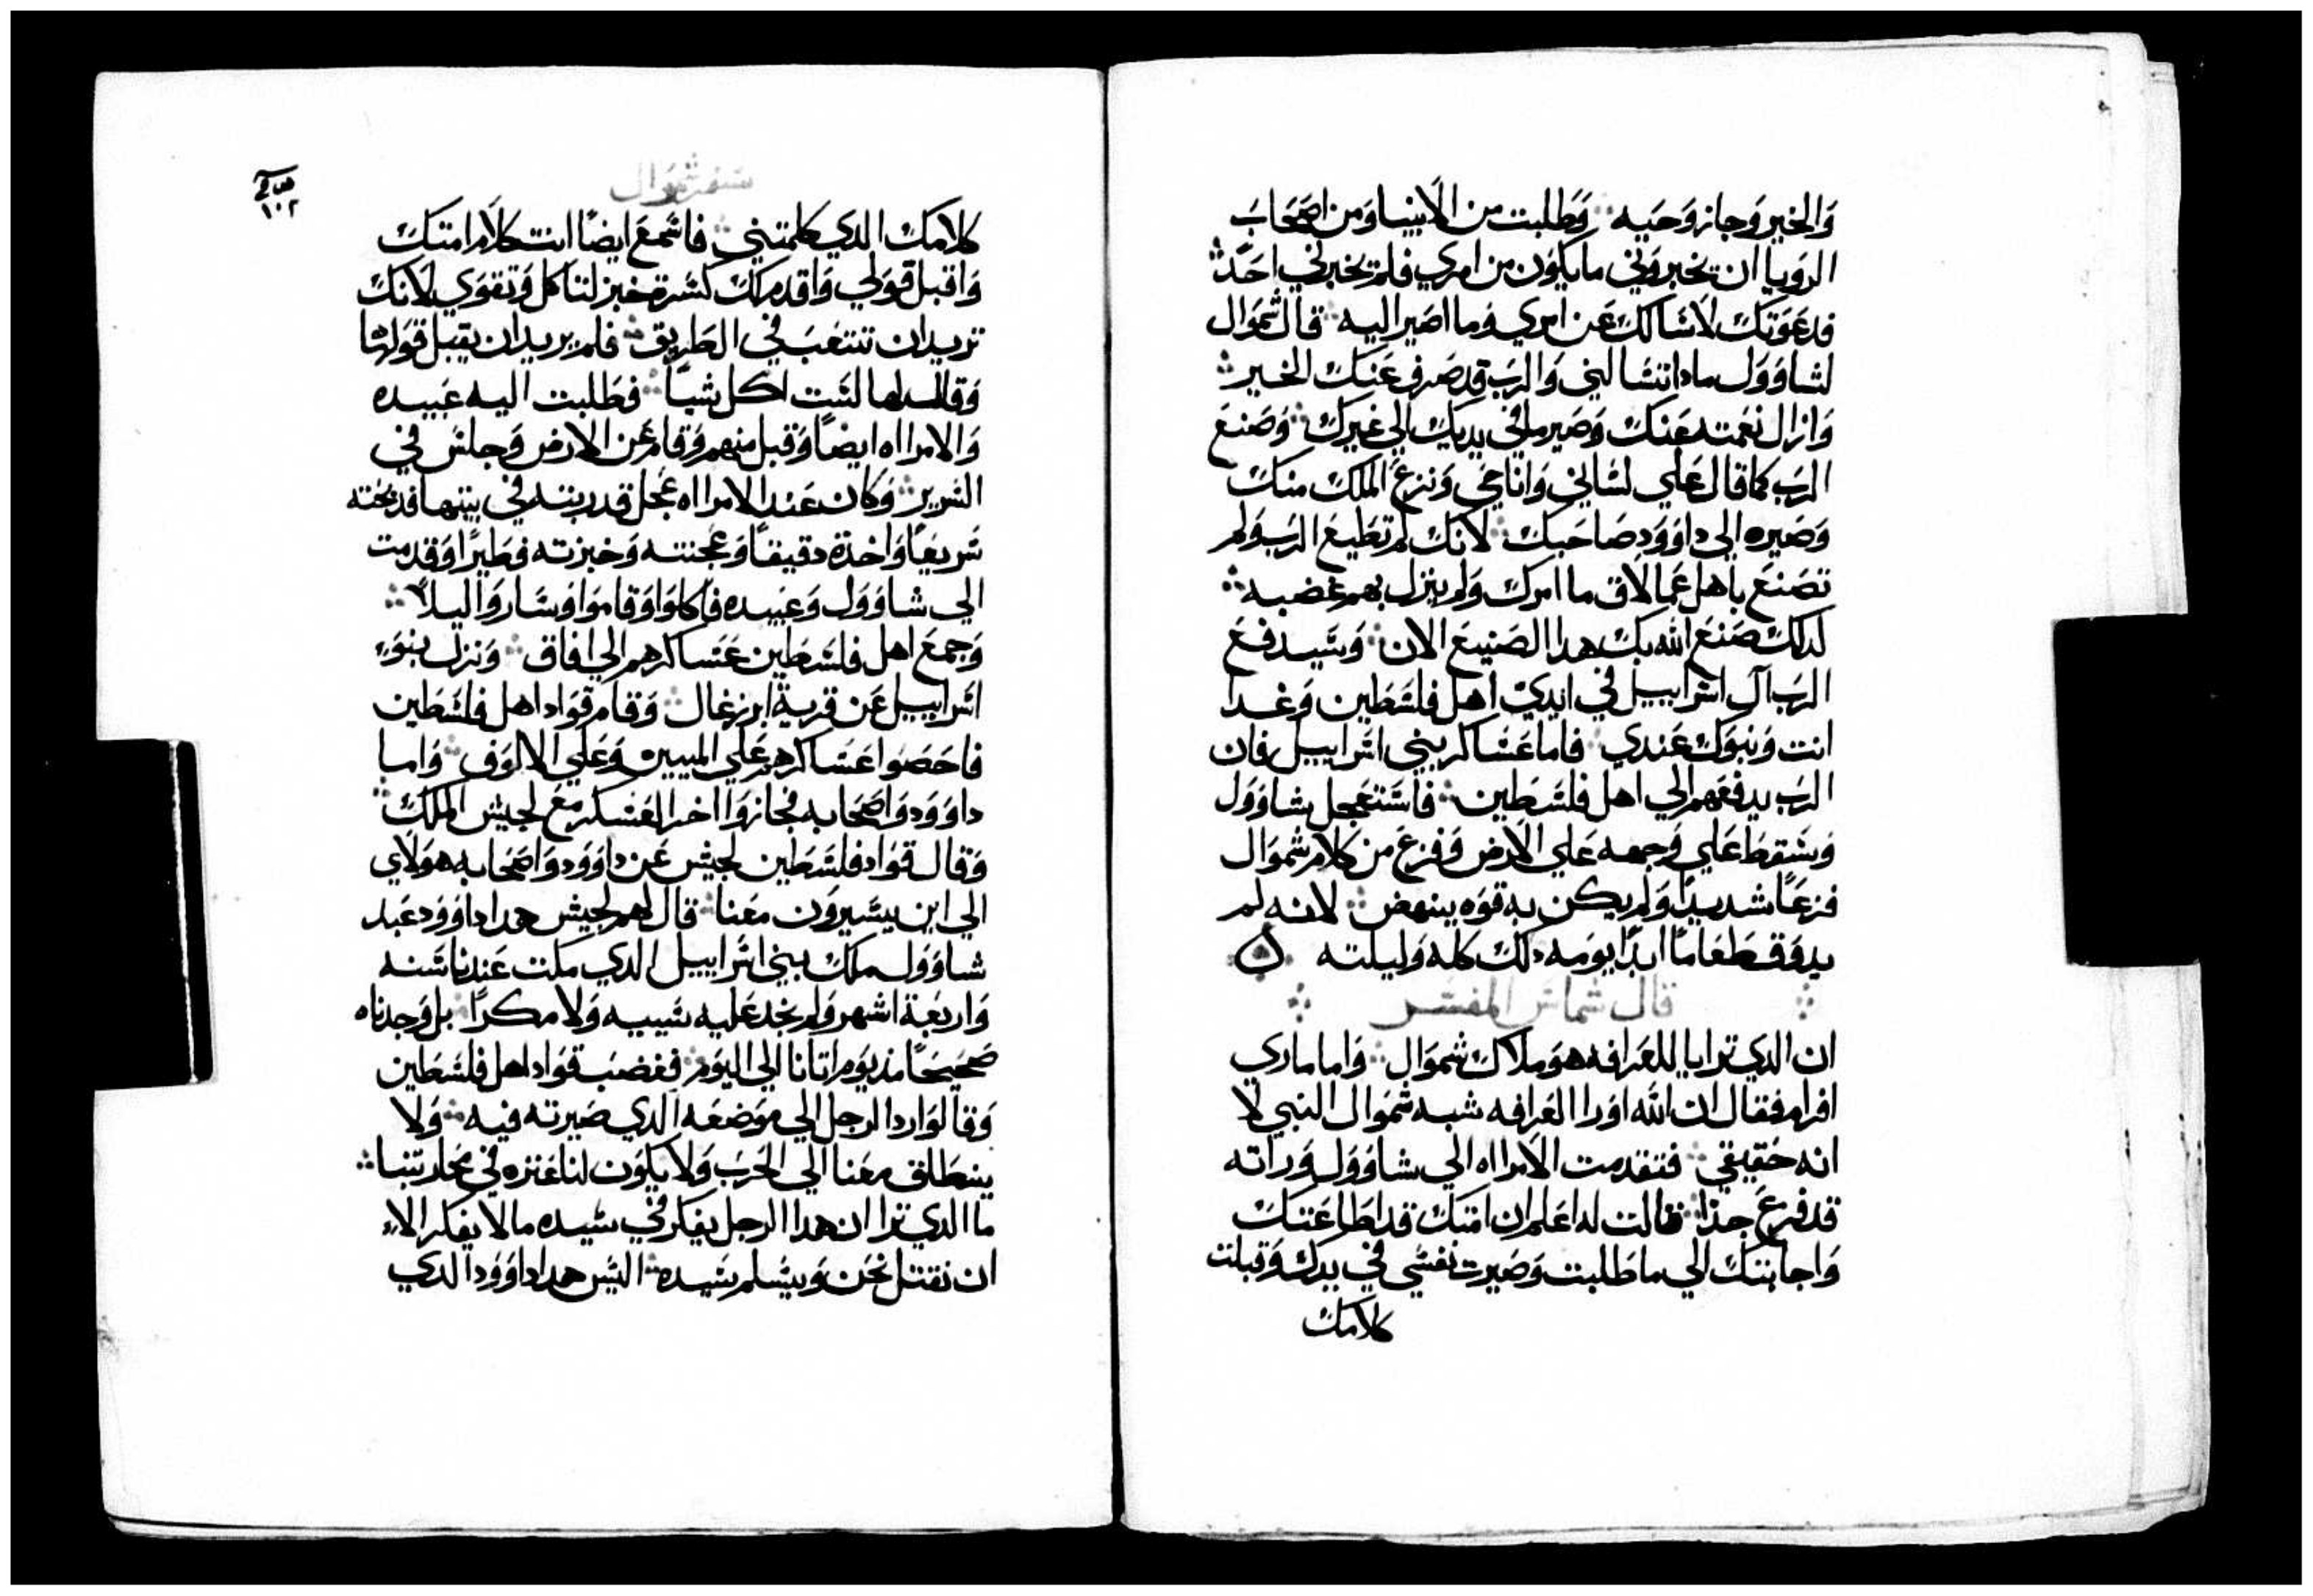 والخير وجاز وحيه ⁘ وطلبت من الانبيا ومن اصحاب
الرويا ان تخبروني ما يكون من امري فلم تخبرني احد ⁘
فدعوتك لاسالك عن امري وما اصير اليه ⁘ قال شموال
لشاوول مادا تسالني والرب قد صرف عنك الخير ⁘
وازال نعمته عنك وصير ما في يديك الي غيرك ⁘ وصنع
الرب كما قال علي لساني وانا حي ونزع الملك منك
وصيره الي داوود صاحبك ⁘ لانك لم تطيع الرب ولم
تصنع باهل عمالاق ما امرك ولم ينزل بهم غضبه ⁘
لدلك صنع الله بك هدا الصنيع الان ⁘ وسيدفع
الرب آل اسراييل في ايدي اهل فلسطين وغدا
انت وبنوك عندي ⁘ فاما عساكر بني اسراييل فان
الرب يدفعهم الي اهل فلسطين ⁘ فاستعجل شاوول
وسقط علي وجهه علي الارض وفزع من كلام شموال
فزعاً شديداً ولم يكن به قوه ينهض ⁘ لانه لم
يدوق طعاماً ابداً يومه دلك كله وليلته
⁘ قال شماس المفسر ⁘
ان الدي ترايا للعرافه هو ملاك شموال ⁘ واما ماري
افرام فقال ان الله اورا العرافه شبه شموال النبي لا
انه حقيقي ⁘ فتقدمت الامراه الي شاوول وراته
قد فزع جداً ⁘ فقالت له اعلم ان امتك قد اطاعتك
واجابتك الي ما طلبت وصيرت نفسي في يدك وقبلت
كلامك
سفر شموال
١٠٢
كلامك الدي كلمتني ⁘ فاسمع ايضاً انت كلام امتك
واقبل قولي واقدم لك كسرة خبز لتاكل وتقوي لانك
تريد ان تتعب في الطريق ⁘ فلم يريد ان يقبل قولها
وقال لها لست اكل شياً ⁘ فطلبت اليه عبيده
والامراه ايضاً وقبل منهم وقام عن الارض وجلس في
السرير ⁘ وكان عند الامراه عجل قد ربته في بيتها فدبحته
سريعاً واخذة دقيقاً وعجنته وخبزته فطيراً وقدمت
الي شاوول وعبيده فاكلوا وقاموا وساروا ليلاً ⁘
وجمع اهل فلسطين عساكرهم الي افاق ⁘ ونزل بنوء
اسراييل عن قرية ابزرغال ⁘ وقام قواد اهل فلسطين
فاحصوا عساكرهم علي الميين وعلي الالوف ⁘ واما
داوود واصحابه فجازوا اخر العسكر مع لجيش الملك ⁘
وقال قواد فلسطين لجيش عن داوود واصحابه هولاي
الي اين يسيرون معنا ⁘ قال لهم لجيش هدا داوود عبد
شاوول ملك بني اسراييل الدي مكت عندنا سنه
واربعة اشهر ولم نجد عليه سيبيه ولا مكراً ⁘ بل وجدناه
صحيحاً مند يوم اتانا الي اليوم ⁘ فغضب قواد اهل فلسطين
وقالوا رد الرجل الي موضعه الدي صيرته فيه ⁘ ولا
ينطلق معنا الي الحرب ولا يكون لنا عنزه في محاربتنا ⁘
ما الدي ترا ان هدا الرجل يفكر في سيده ما لا يفكر الاء
ان نقتل نحن ويسلم سيده ⁘ اليس هدا داوود الدي